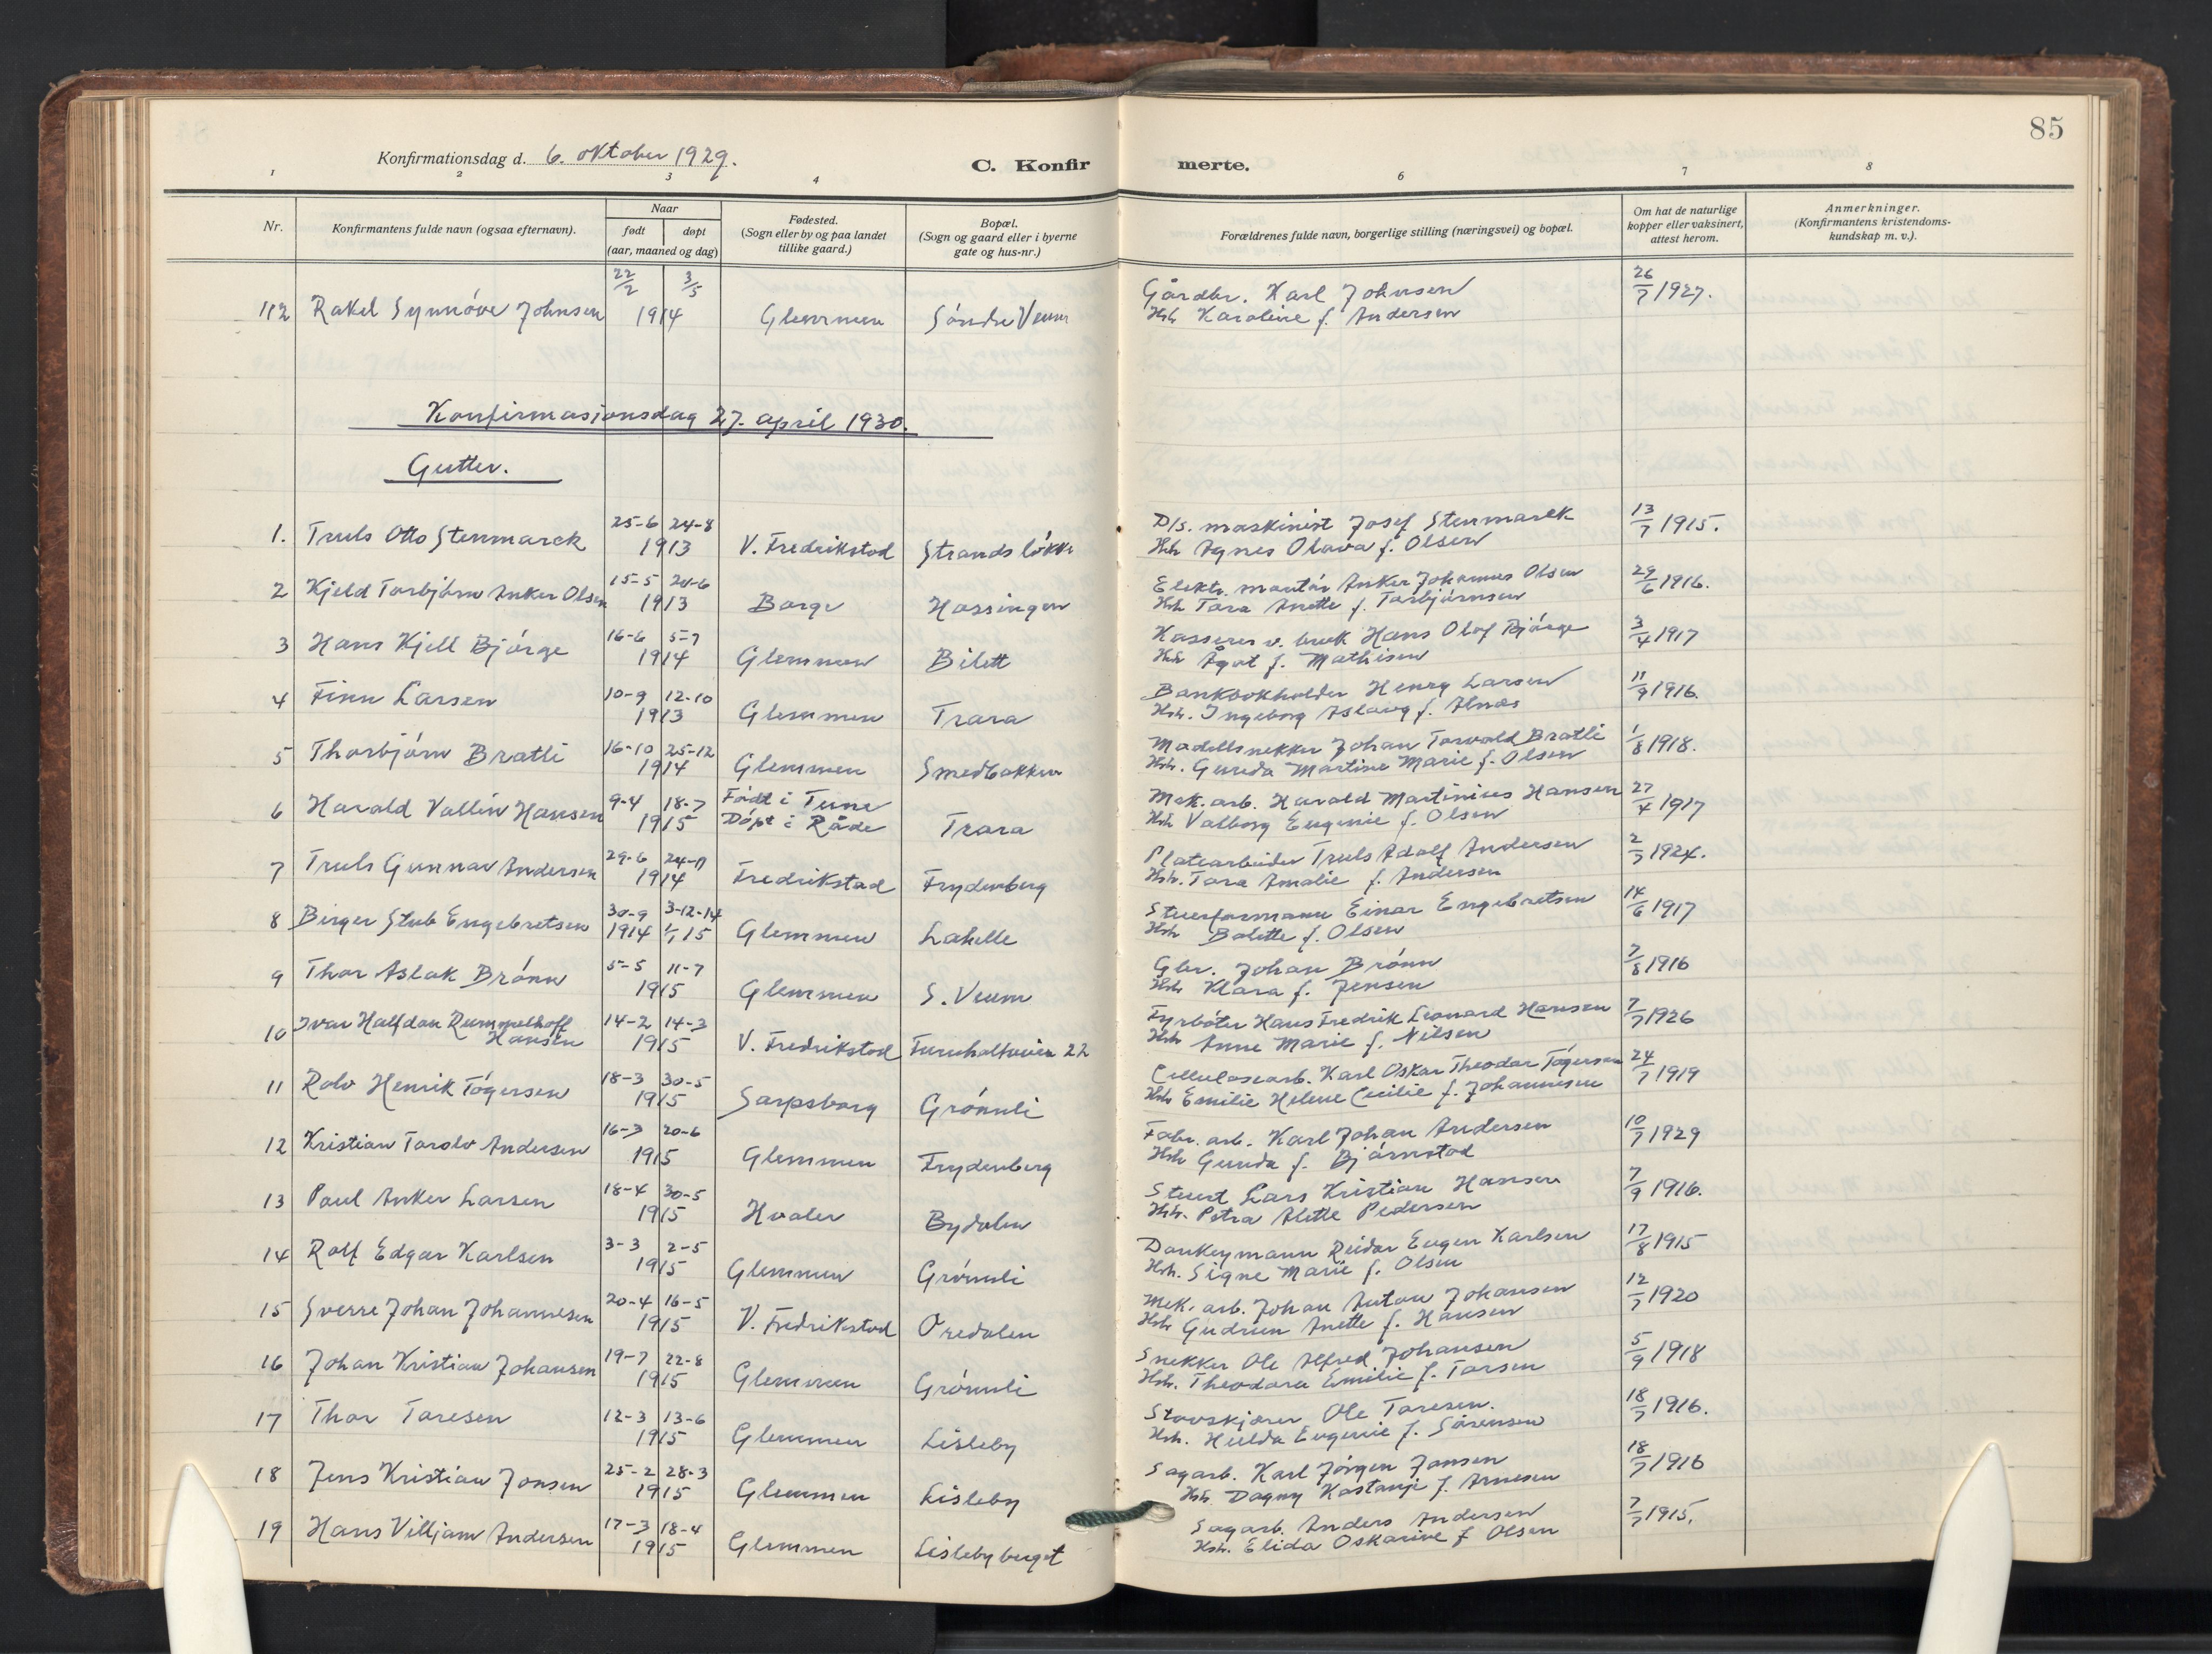 85
Konfirmationsdag d. 6. oktober 1929.
C. Konfirmerte.
1 2 3 4 6 7 8
Nr.
Konfirmantens fulde navn (ogsaa efternavn).
Naar
født døpt
(aar, maaned og dag)
Fødested.
(Sogn eller by og paa landet
tillike gaard.)
Bopæl.
(Sogn og gaard eller i byerne
gate og hus-nr.)
Forældrenes fulde navn, borgerlige stilling (næringsvei) og bopæl.
Om hat de naturlige
kopper eller vaksinert,
attest herom.
Anmerkninger.
(Konfirmantens kristendoms-
kundskap m. v.).
22/2 3/5 Gårdbr. Karl Johnsen 26/7 1927.
112 Rakel Synnöve Johnsen 1914 Glemmen Söndre Veum Hstr Karoline f. Andersen
Konfirmasjonsdag 27. april 1930.
Gutter.
25-6 24-8 D/s. maskinist Josef Stenmarck 13/7 1915.
1. Truls Otto Stenmarck 1913 V. Fredrikstad Strandsløkke Hstr Agnes Olava f. Olsen
15-5 20-6 Elektr. montör Anker Johannes Olsen 29/6 1916.
2 Kjeld Torbjörn Anker Olsen 1913 Borge Hassingen Hstr Tora Anette f. Torbjörnsen
16-6 5-7 Kasserer v. bruk Hans Olaf Bjórge 3/4 1917
3 Hans Kjell Bjórge 1914 Glemmen Bilett Hstr Ågot f. Mathisen
10-9 12-10 Bankbokholder Henry Larsen 11/9 1916.
4 Finn Larsen 1913 Glemmen Trara Hstr. Ingeborg Aslaug f. Alnæs
16-10 25-12 Modellsnekker Johan Torvald Bratli 1/8 1918.
5 Thorbjörn Bratli 1914 Glemmen Smedbakken Hstr. Gunda Martine Marie f. Olsen
9-4 18-7 Født i Tune Mek. arb. Harald Martinius Hansen 27/4 1917
6 Harald Vallin Hansen 1915 Döpt i Råde Trara Hstr Valborg Eugenie f. Olsen
29-6 24-11 Platearbeider Truls Adolf Andersen 2/7 1924.
7 Truls Gunnar Andersen 1914 Fredrikstad Frydenberg Hstr. Tora Amalie f. Andersen
30-9 3-12-14 Stuerformann Einar Engebretsen 14/6 1917
8 Birger Stub Engebretsen 1914 1/1 15 Glemmen Lahelle Hstr Bolette f. Olsen
5-5 11-7 Gbr. Johan Brónn 7/8 1916
9 Thor Aslak Brónn 1915 Glemmen S. Veum Hstr Klara f. Jensen
10 Ivar Halfdan Rummelhoff 14-2 14-3 Fyrböter Hans Fredrik Leonard Hansen 7/7 1926
Hansen 1915 V. Fredrikstad 22 Hstr Anne Marie f. Nilsen
18-3 30-5 Cellulosearb. Karl Oskar Theodor Tógersen 24/7 1919
11 Rolv Henrik Tógersen 1915 Sarpsborg Grónnli Hstr Emilie Helene Cecilie f. Johannesen
16-3 20-6 Fabr. arb. Karl Johan Andersen 10/7 1929
12 Kristian Torolv Andersen 1915 Glemmen Frydenberg Hstr Gunda f. Bjórnstad
18-4 30-5 Stuert Lars Kristian Hansen 7/9 1916.
13 Paul Anker Larsen 1915 Hvaler Bydalen Hstr. Petra Alette Pedersen
3-3 2-5 Donkeymann Reidar Eugen Karlsen 17/8 1915
14 Rolf Edgar Karlsen 1915 Glemmen Grónnli Hstr. Signe Marie f. Olsen
20-4 16-5 Mek. arb. Johan Anton Johansen 12/7 1920
15 Sverre Johan Johannesen 1915 V. Fredrikstad Oredalen Hstr Gudrun Anette f. Hansen
19-7 22-8 Snekker Ole Alfred Johansen 5/9 1918
16 Johan Kristian Johansen 1915 Glemmen Grónnli Hstr. Theodora Emilie f. Torsen
12-3 13-6 Stavskjærer Ole Toresen. 18/7 1916.
17 Thor Toresen 1915 Glemmen Lisleby Hstr. Hulda Eugenie f. Sörensen
25-2 28-3 Sagarb. Karl Jörgen Jonsen 18/7 1916
18 Jens Kristian Jonsen 1915 Glemmen Lisleby Hstr. Dagny Kastanje f. Arnesen
17-3 18-4 Sagarb. Anders Andersen 7/7 1915.
19 Hans Villjam Andersen 1915 Glemmen Lislebyberget Hstr. Elida Oskarine f Olsen